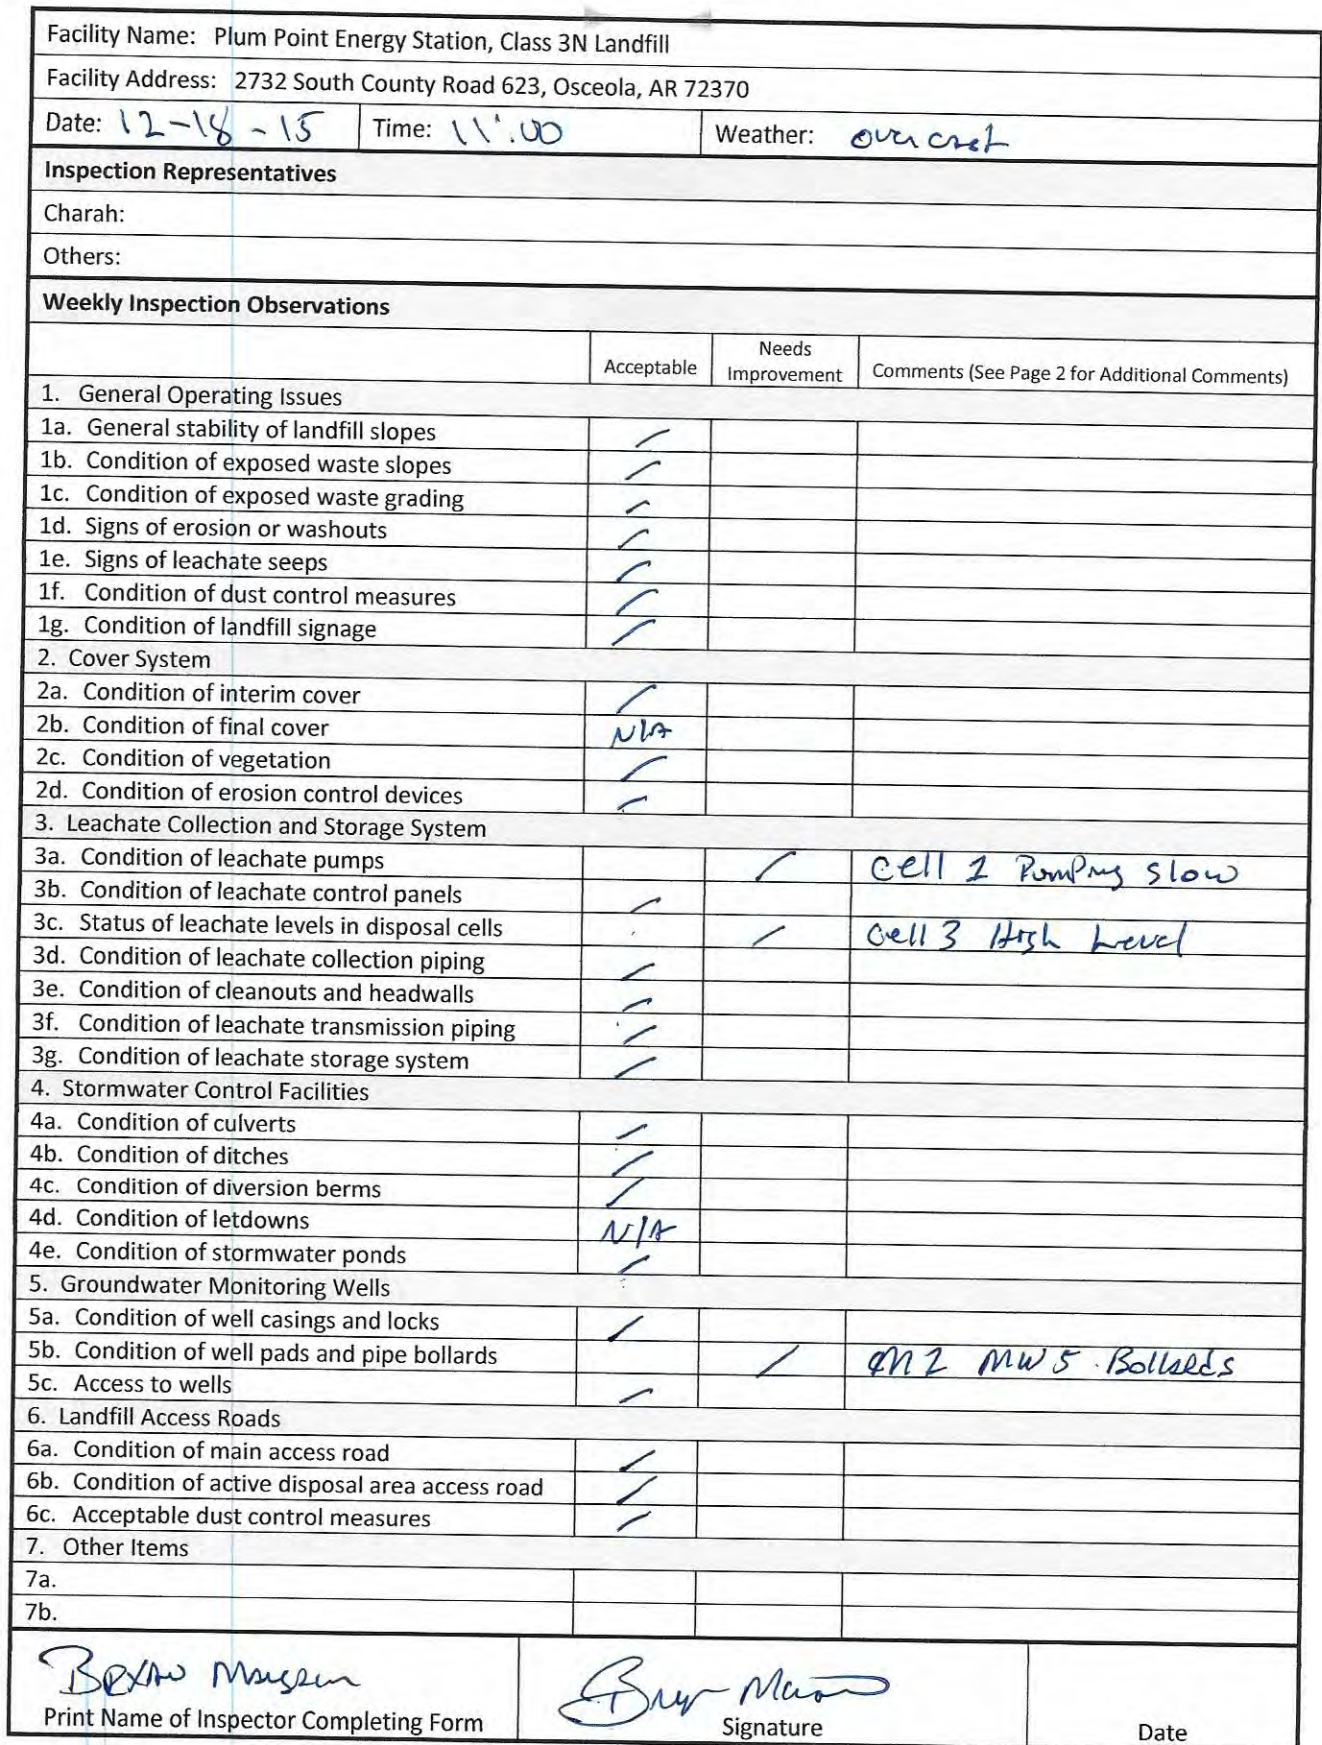 Facility Name: Plum Point Energy Station, Class 3N Landfill
Facility Address: 2732 South County Road 623, Osceola, AR 72370
Date: 12-18-15 Time: 11:00 Weather: overcast
Inspection Representatives
Charah:
Others:
Weekly Inspection Observations
Acceptable Needs Improvement Comments (See Page 2 for Additional Comments)
1. General Operating Issues
1a. General stability of landfill slopes
1b. Condition of exposed waste slopes
1c. Condition of exposed waste grading
1d. Signs of erosion or washouts
1e. Signs of leachate seeps
1f. Condition of dust control measures
1g. Condition of landfill signage
2. Cover System
2a. Condition of interim cover
2b. Condition of final cover N/A
2c. Condition of vegetation
2d. Condition of erosion control devices
3. Leachate Collection and Storage System
3a. Condition of leachate pumps Cell 1 Pumping Slow
3b. Condition of leachate control panels
3c. Status of leachate levels in disposal cells Cell 3 High Level
3d. Condition of leachate collection piping
3e. Condition of cleanouts and headwalls
3f. Condition of leachate transmission piping
3g. Condition of leachate storage system
4. Stormwater Control Facilities
4a. Condition of culverts
4b. Condition of ditches
4c. Condition of diversion berms
4d. Condition of letdowns N/A
4e. Condition of stormwater ponds
5. Groundwater Monitoring Wells
5a. Condition of well casings and locks
5b. Condition of well pads and pipe bollards MW5 Bollards
5c. Access to wells
6. Landfill Access Roads
6a. Condition of main access road
6b. Condition of active disposal area access road
6c. Acceptable dust control measures
7. Other Items
7a.
7b.
Print Name of Inspector Completing Form Signature Date